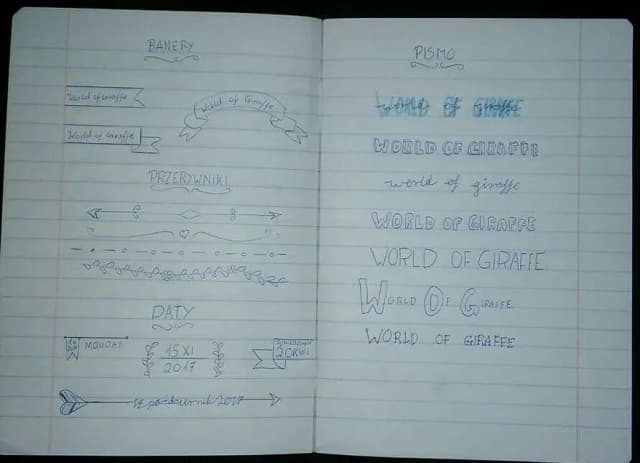 BANERY
World of Giraffe
World of Giraffe
World of Giraffe
PRZERYWNIKI
DATY
MONDAY
15 XI
2017
20KWI
październik 2017
PISMO
WORLD OF GIRAFFE
WORLD OF GIRAFFE
world of giraffe
WORLD OF GIRAFFE
WORLD OF GIRAFFE
WORLD OF GIRAFFE
WORLD OF GIRAFFE